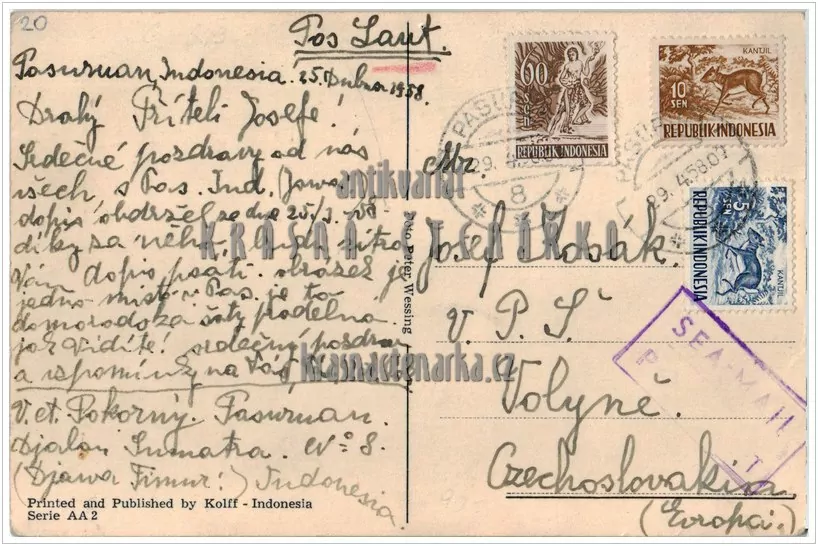 20
Pos Laut.
Pasuruan, Indonesia. 25. Dubna 1958.
Drahý Příteli Josefe!
Srdečné pozdravy od nás
všech, s Pas. Ind. (Jawa
dopis obdržel ze dne 25/3-58
díky za něho, budu zítra
Vám dopis psáti. obrázek je
jedno místo v Pas. je to
domorodá šaty prádelna.
jak vidíte! srdečný pozdrav
a vzpomínky na Vás
V. et. Pokorný. Pasuruan.
Djalan Sumatra. No 8.
(Djawa Timur:) Indonesia.
Printed and Published by Kolff - Indonesia
Serie AA 2
Foto: Peter Wessing
60
SEN
REPUBLIK INDONESIA
KANTJIL
10
SEN
REPUBLIK INDONESIA
KANTJIL
5
SEN
REPUBLIK INDONESIA
PASUR
29.4.58
8
PASUR
29.4.58.07
Mr.
Josef Kosák.
V. P. Š.
Volyně.
Czechoslovakia
(Evropa.)
SEA-MAIL
P T
antikvariát
KRÁSNÁ STENARKA
krasnastenarka.cz